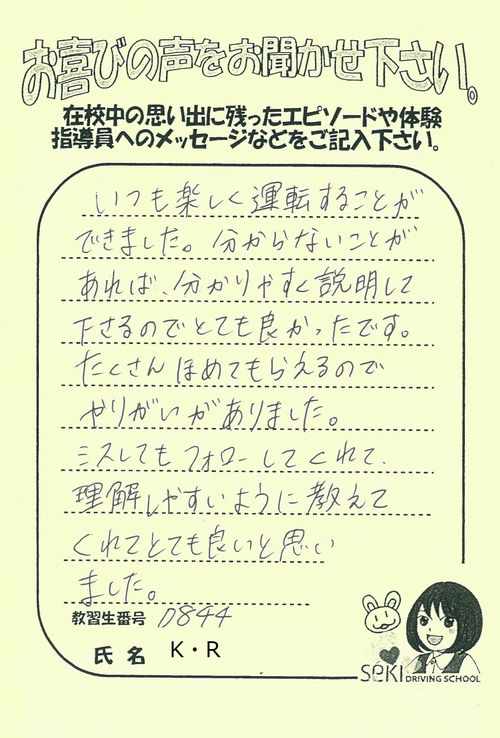 お喜びの声をお聞かせ下さい。
在校中の思い出に残ったエピソードや体験
指導員へのメッセージなどをご記入下さい。
いつも楽しく運転することが
できました。分からないことが
あれば、分かりやすく説明して
下さるのでとても良かったです。
たくさんほめてもらえるので
やりがいがありました。
ミスしてもフォローしてくれて、
理解しやすいように教えて
くれてとても良いと思い
ました。
教習生番号 0844
氏名 K・R
SeKI DRIVING SCHOOL